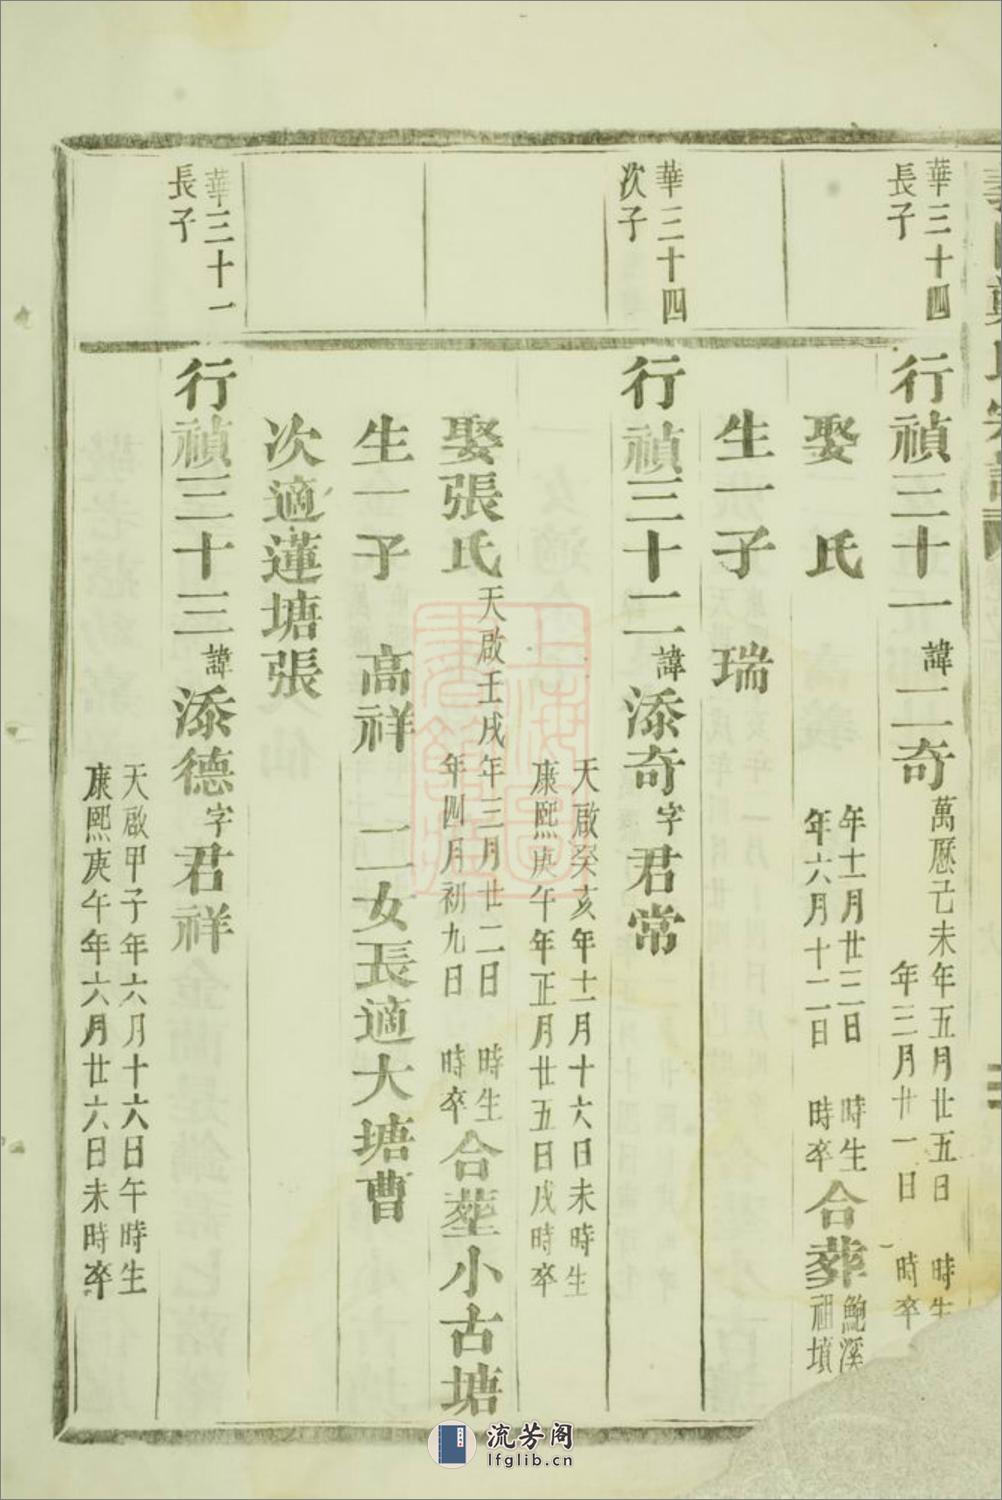 華三十四
長子
行禎三十一諱二奇
萬厯己未年五月廿五日 時生
年三月廿一日 時卒
娶 氏
年十一月廿三日 時生
年六月十二日 時卒
合葬
鮑溪
祖墳
生一子 瑞
華三十四
次子
行禎三十二諱添奇字君常
天啟癸亥年十一月十六日未時生
康熙庚午年正月廿五日戌時卒
娶張氏
天啟壬戌年三月廿二日 時生
年四月初九日 時卒
合塟小古塘
生一子 高祥 二女長適大塘曹
次適蓮塘張
華三十一
長子
行禎三十三諱添德字君祥
天啟甲子年六月十六日午時生
康熙庚午年六月廿六日未時卒
上海圖書館藏
流芳阁
lfglib.cn